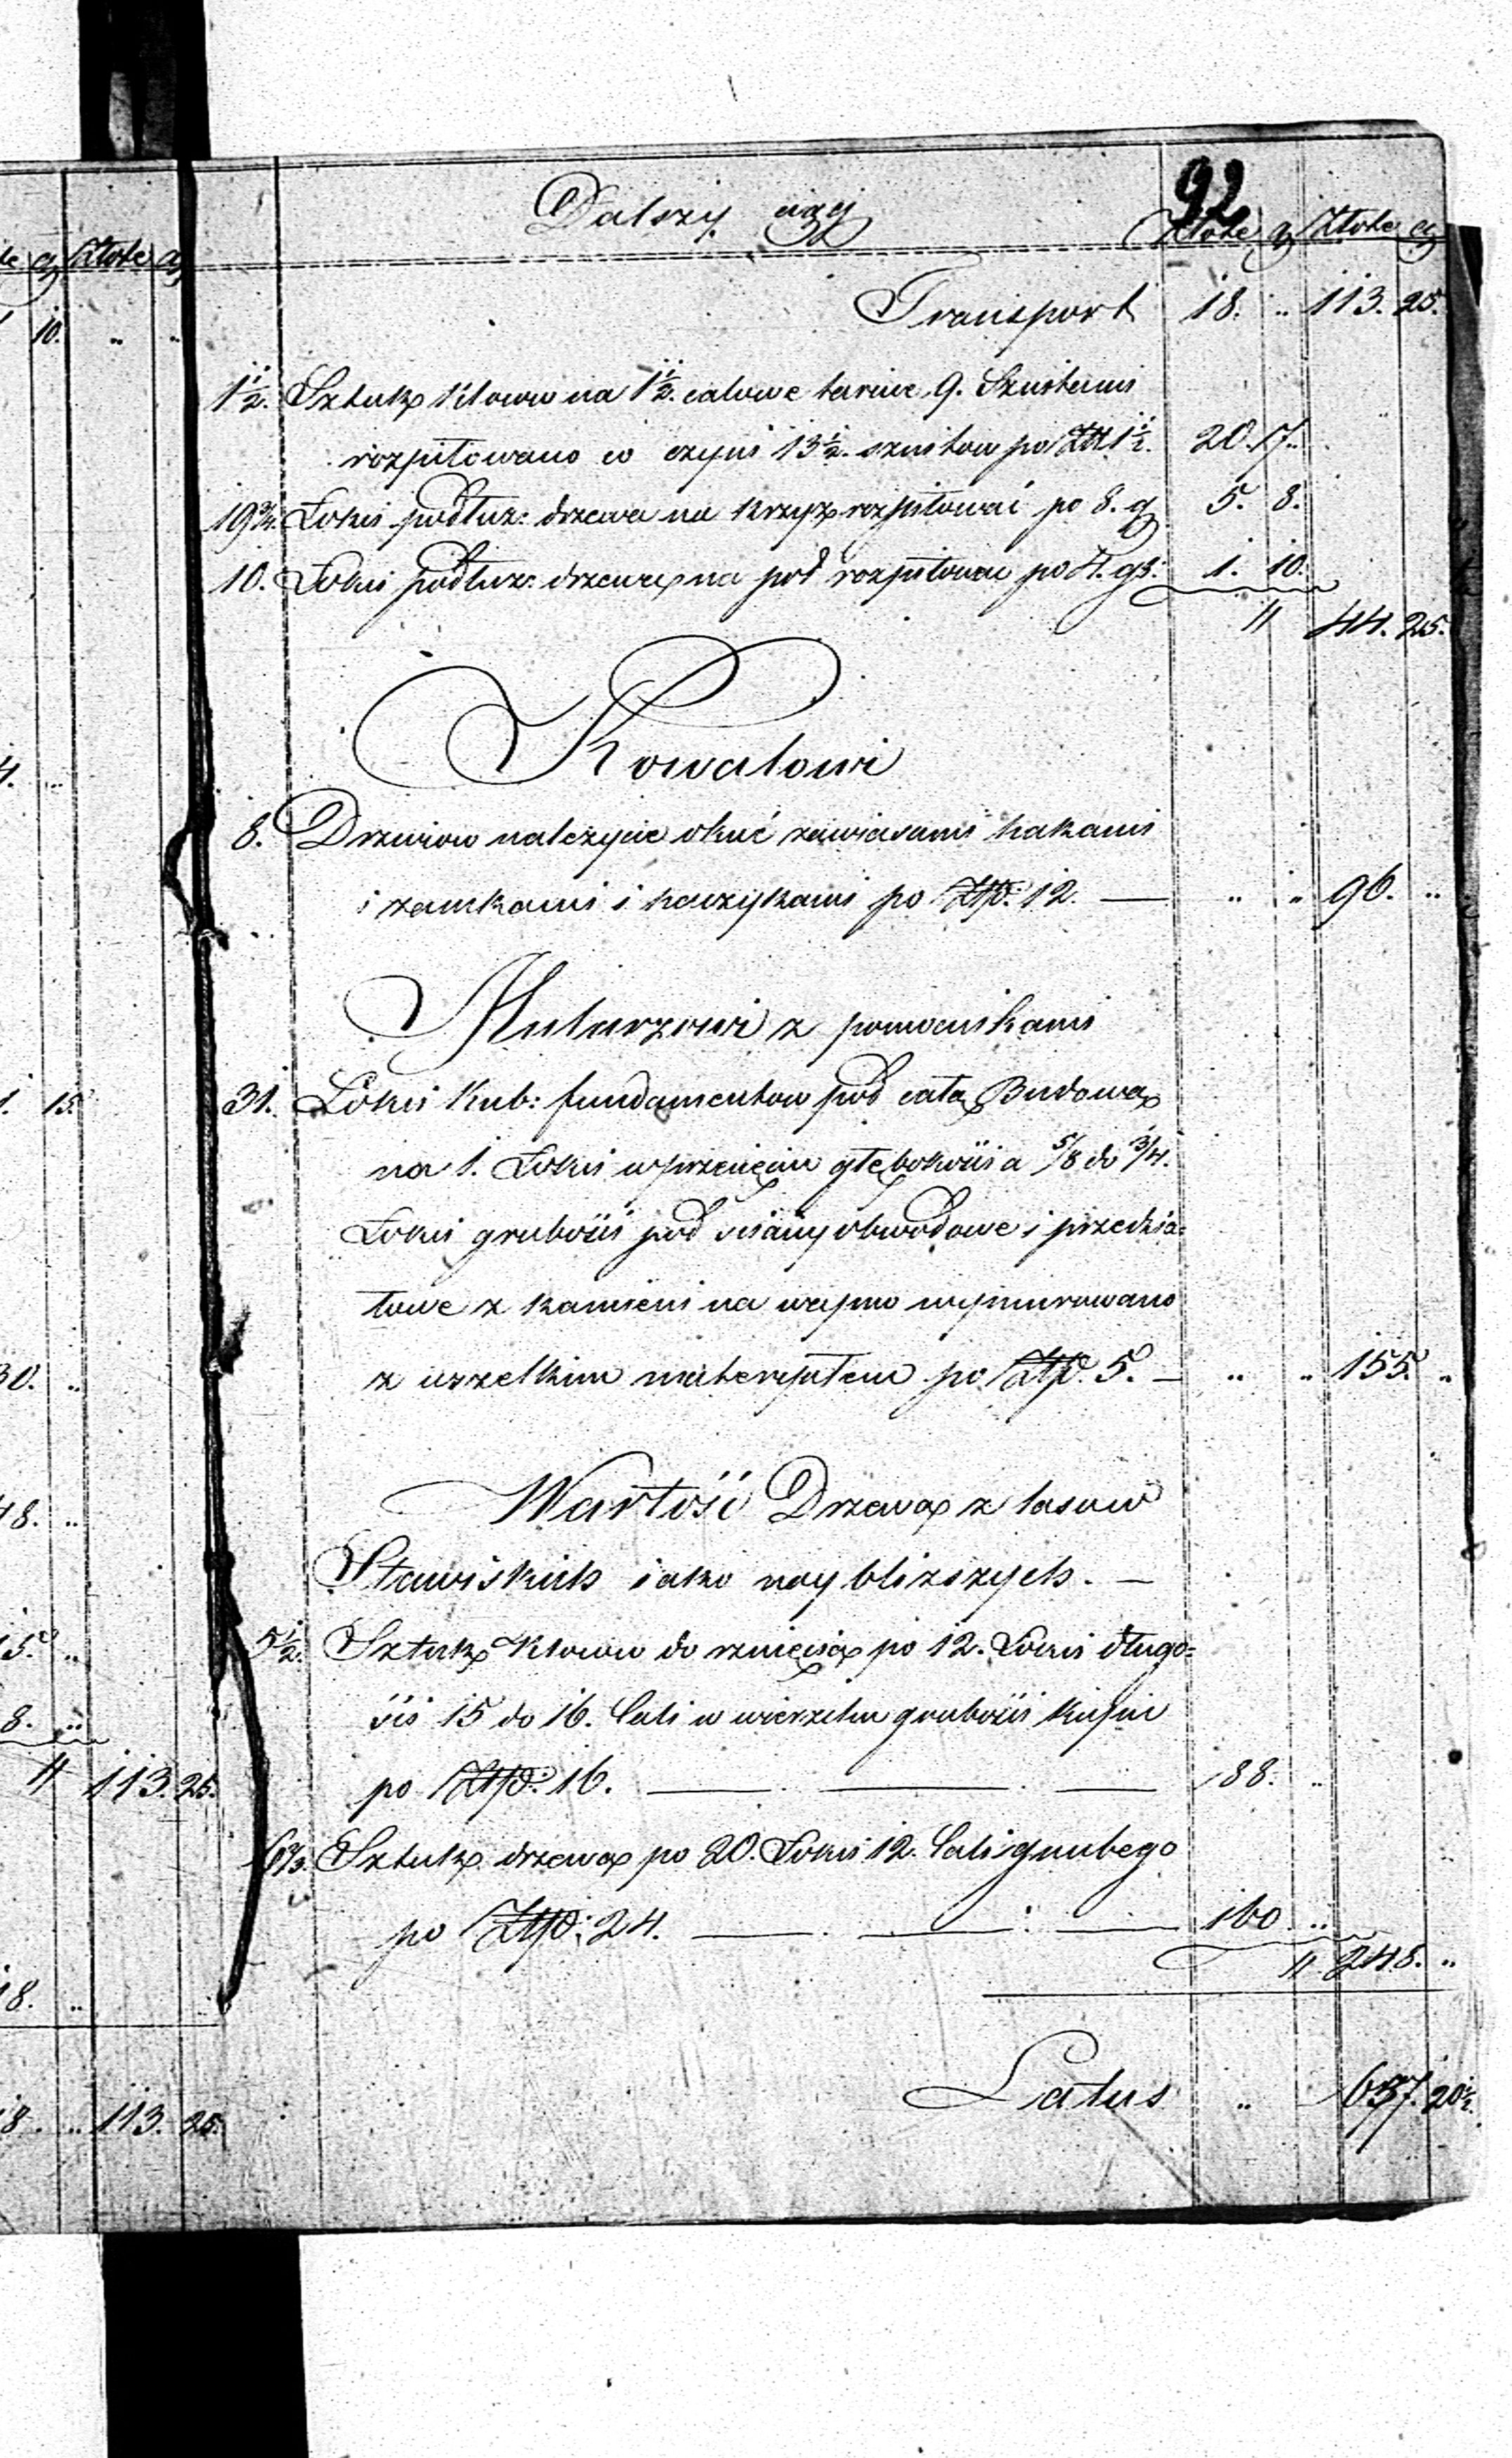 92
Dalszy ciąg
Złote g Złote g
Transport 18. .. 113. 25.
1½. Sztukę Klocow na 1½. calowe tarcice 9. Sznitami
rozpiłowano co czyni 13½. sznitow po Zł 1½. 20. 7.
19¾. Łokci podłuż: drzewa na krzyż rozpiłować po 8. g 5. 8.
10. Łokci podłuż: drzewa na poł rozpiłować po 4. gr: 1. 10.
" 44. 25.
Kowalowi
8. Drzwiow należycie okuć zawiasami hakami
i zamkami i haczykami po Złp: 12. — .. .. 96. ..
Mularzowi z pomocnikami
31. Łokci Kub: fundamentow pod całą Budowę
na 1. Łokci w przecięciu głębokości a 5/8 do 3/4.
Łokci grubości pod ściany obwodowe i przedzia=
łowe z kamieni na wapno wymurowano
z wszelkim materyałem po Złp. 5. — .. .. 155. ..
Wartość Drzewa z lasow
Stawiskich iako naybliższych. —
5½. Sztukę Klocow do rznięcia po 12. Łokci długo=
ści 15 do 16. Cali w wierzchu grubości kupić
po Złp: 16. — 88. ..
6⅔. Sztukę drzewa po 20. Łokci 12. Cali grubego
po Złp: 24. — 160. ..
" 248. ..
Latus .. 657. 20½.
le g Złote g
10. .. ..
4. ..
1. 15.
30. ..
48. ..
15. ..
8. ..
" 113. 25.
18. ..
18. .. 113. 25.